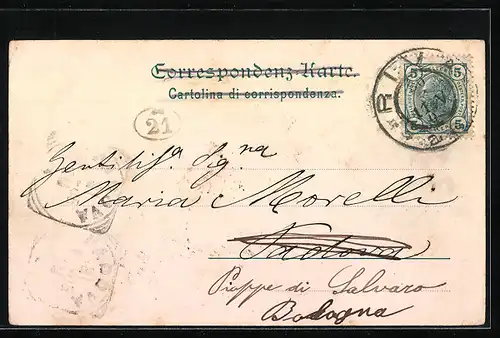 Correspondenz-Karte.
Cartolina di corrispondenza.
5 5
RIVA
5
21
Gentilisa. Sigra
Maria Morelli
Padova
Pioppe di Salvaro
Bologna